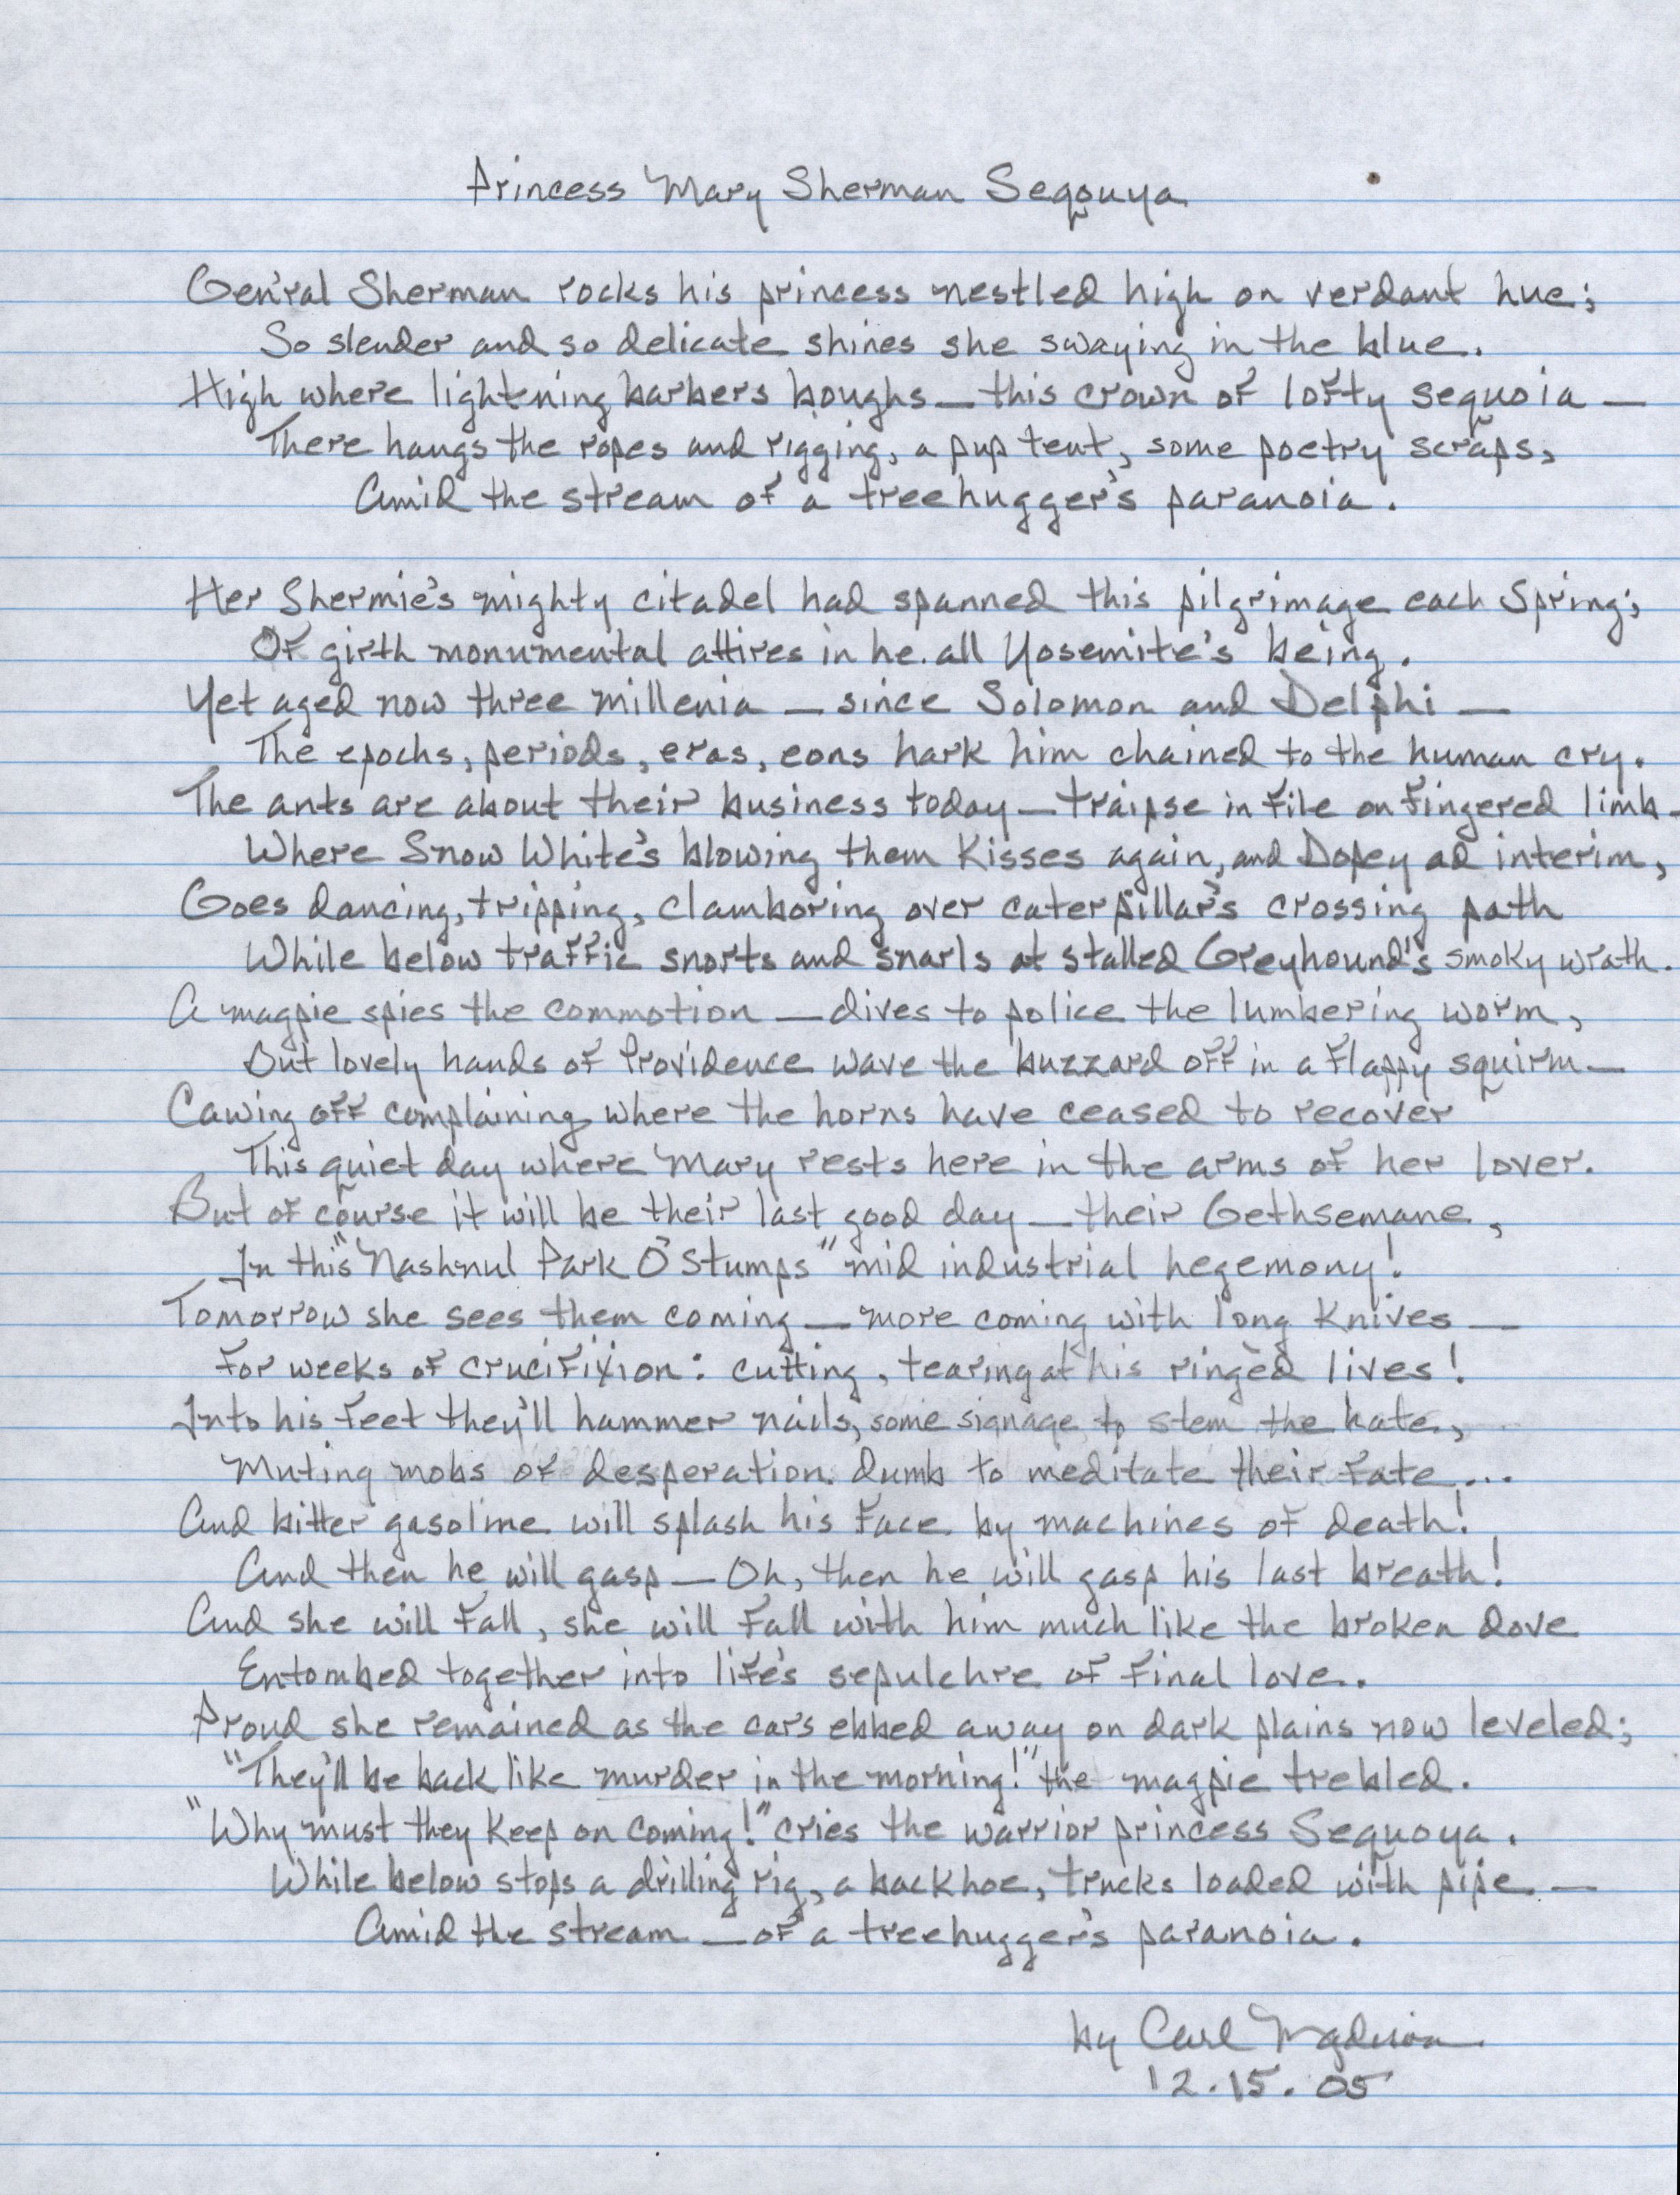 Princess Mary Sherman Seqouya
Gen'ral Sherman rocks his princess nestled high on verdant hue;
So slender and so delicate shines she swaying in the blue.
High where lightning barbers boughs — this crown of lofty sequoia —
There hangs the ropes and rigging, a pup tent, some poetry scraps,
Amid the stream of a treehugger's paranoia.
Her Shermie's mighty citadel had spanned this pilgrimage each Spring;
Of girth monumental attires in he all Yosemite's being.
Yet aged now three millenia — since Solomon and Delphi —
The epochs, periods, eras, eons hark him chained to the human cry.
The ants are about their business today — traipse in file on fingered limb —
Where Snow White's blowing them kisses again, and Dopey ad interim,
Goes dancing, tripping, clamboring over caterpillar's crossing path
While below traffic snorts and snarls at stalled Greyhound's smoky wrath.
A magpie spies the commotion — dives to police the lumbering worm,
But lovely hands of Providence wave the buzzard off in a flappy squirm —
Cawing off complaining where the horns have ceased to recover
This quiet day where Mary rests here in the arms of her lover.
But of course it will be their last good day — their Gethsemane,
In this "Nash'nul Park O' Stumps" mid industrial hegemony!
Tomorrow she sees them coming — more coming with long knives —
For weeks of crucifixion: cutting, tearing at his ringed lives!
Into his feet they'll hammer nails, some signage to stem the hate,
Muting mobs of desperation dumb to meditate their fate...
And bitter gasoline will splash his face by machines of death!
And then he will gasp — Oh, then he will gasp his last breath!
And she will fall, she will fall with him much like the broken dove
Entombed together into life's sepulchre of final love.
Proud she remained as the cars ebbed away on dark plains now leveled;
"They'll be back like murder in the morning!" the magpie trebled.
"Why must they keep on coming!" cries the warrior princess Sequoya.
While below stops a drilling rig, a backhoe, trucks loaded with pipe —
Amid the stream — of a treehugger's paranoia.
by Carl Madison
12.15.05